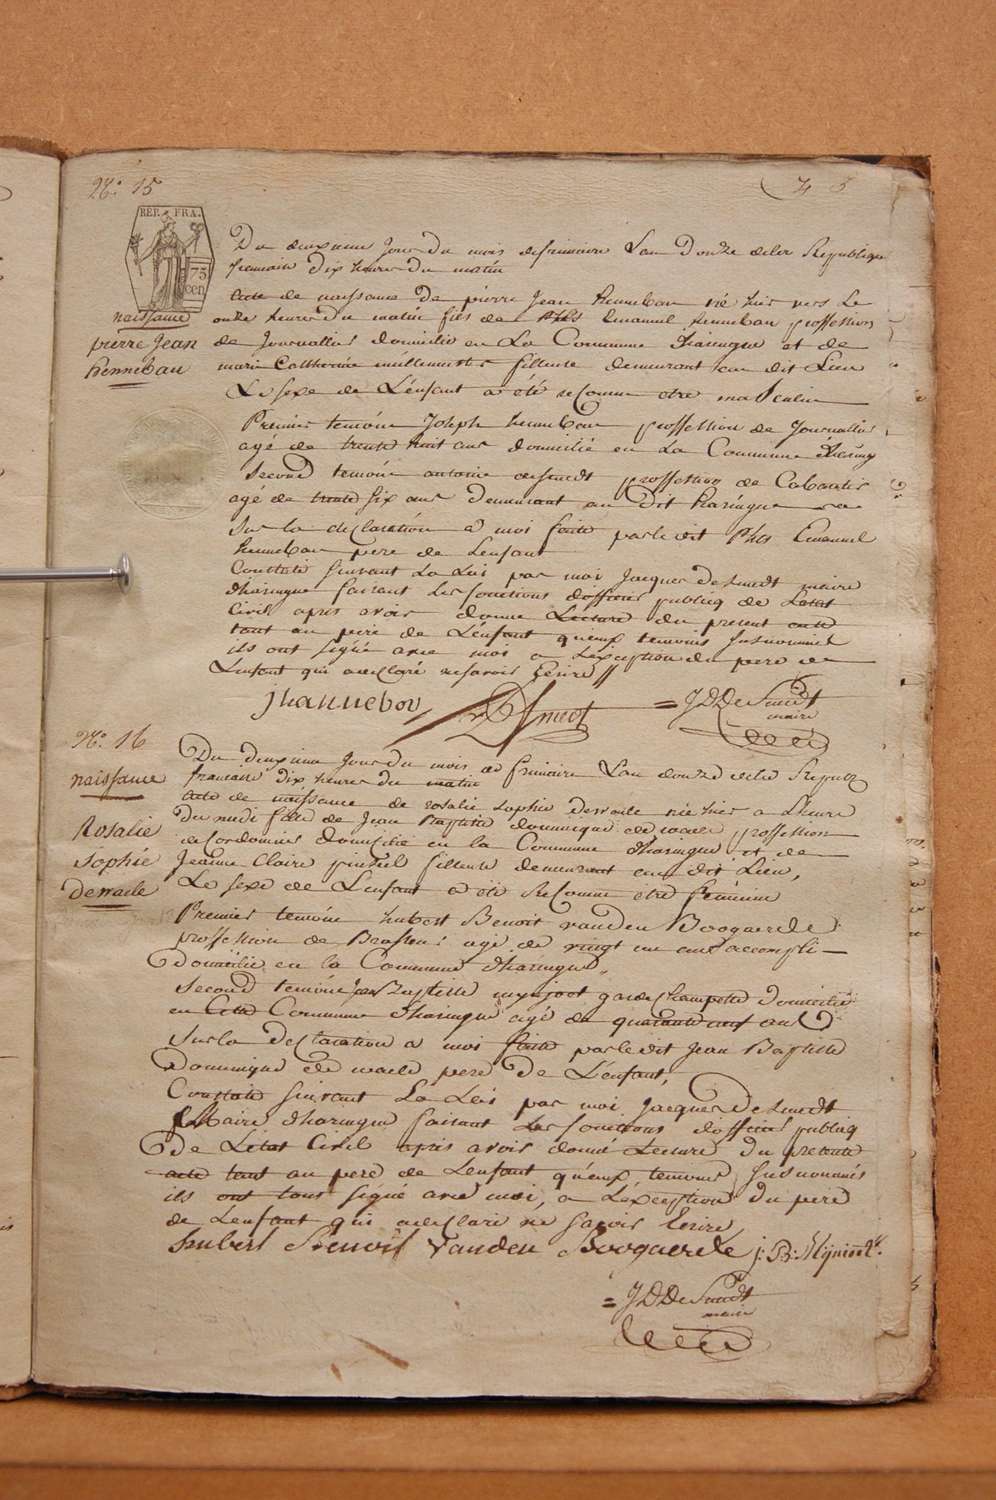 No. 15
4 5
REP. FRA.
75
cen
Du deuxieme Jour du mois de frimaire L'an Douze de la Republique
francaise Dix heures du matin
naissance
pierre Jean
hennebau
Acte de naissance de pierre Jean hennebau né hier vers Le
onze heures du matin fils de Emanuel hennebau proffession
de Journallier domicilié en La Commune d'haringue et de
marie Catherine fileuse demeurant au dit Lieu
Le sexe de L'enfant a été reconnu etre masculin
Premier temoin Joseph hennebau proffession de Journallier
agé de trente huit ans domicilié en La Commune d'haring
Second temoin antoine desmedt proffession de Cabaretier
agé de trente six ans demeurant au dit haringue
Sur la declaration a moi faite par le dit Emanuel
hennebau pere de L'enfant
Constaté suivant La Loi par moi Jacques De Smedt maire
d'haringue faisant Les fonctions d'officier publiq de L'etat
Civil apres avoir donné Lecture du present acte
tant au pere de L'enfant qu'eux temoins susnommés
ils ont signé avec moi a L'exception du pere de
L'enfant qui a declaré ne savoir Ecrire
jhannebou
DSmedt
= J D De Smedt
maire
No. 16
naissance
Rosalie
Sophie
Dewaele
Du deuxieme Jour du mois de frimaire L'an douze de la Repub
francaise dix heures du matin
Acte de naissance de rosalie sophie dewaele née hier a L'heure
du midi fille de Jean Baptiste dominique de waele proffession
de Cordonnier domicilié en la Commune d'haringue et de
Jeanne Claire fileuse demeurant au dit Lieu,
Le sexe de L'enfant a été Reconnu etre feminin
Premier temoin hubert Benoit vanden Booguerde
proffession de Brasseur agé de vingt un ans accompli
Domicilié en la Commune d'haringue,
Second temoin jean Baptiste mynjoot gardechampette domicilié
en Cette Commune d'haringue agé de quarante neuf ans
Sur la declaration a moi faite par le dit Jean Baptiste
Dominique de waele pere De L'enfant,
Constaté suivant La Loi par moi Jacques De Smedt
Maire d'haringue faisant Les fonctions d'officier publiq
De L'etat Civil apres avoir donné Lecture du presente
acte tant au pere de L'enfant qu'eux temoins susnommés
ils ont tous signé avec moi, a L'exception du pere
de L'enfant qui a declaré ne savoir Ecrire
hubert Benoit vanden Boogaerde j: B: Mijnieolt
= J D De Smedt
maire